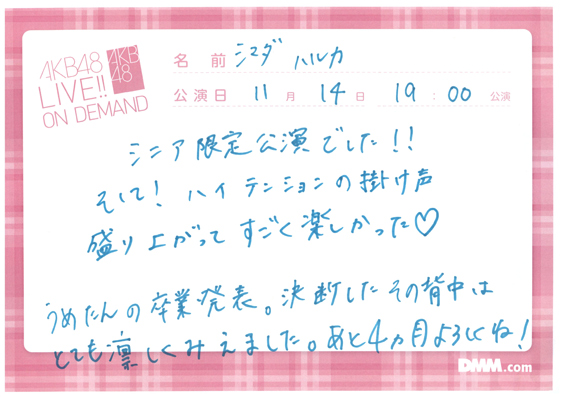 AKB48
LIVE!!
ON DEMAND
AKB
48
名 前 シマダ ハルカ
公演日 11 月 14 日 19 : 00 公演
シニア限定公演でした!!
そして! ハイテンションの掛け声
盛り上がってすごく楽しかった♡
うめたんの卒業発表。決断したその背中は
とても凛しくみえました。あと4ヵ月よろしくね!
DMM.com